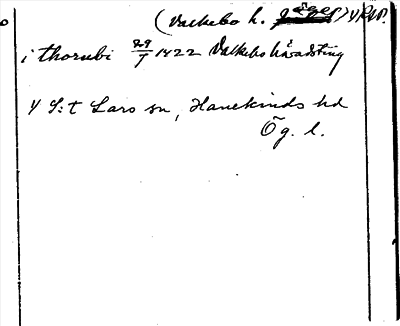 (Valkebo h.
i thorubi 29/7 1422 Valkebo häradsting
S:t Lars sn, Hanekinds hd
Ög. l.